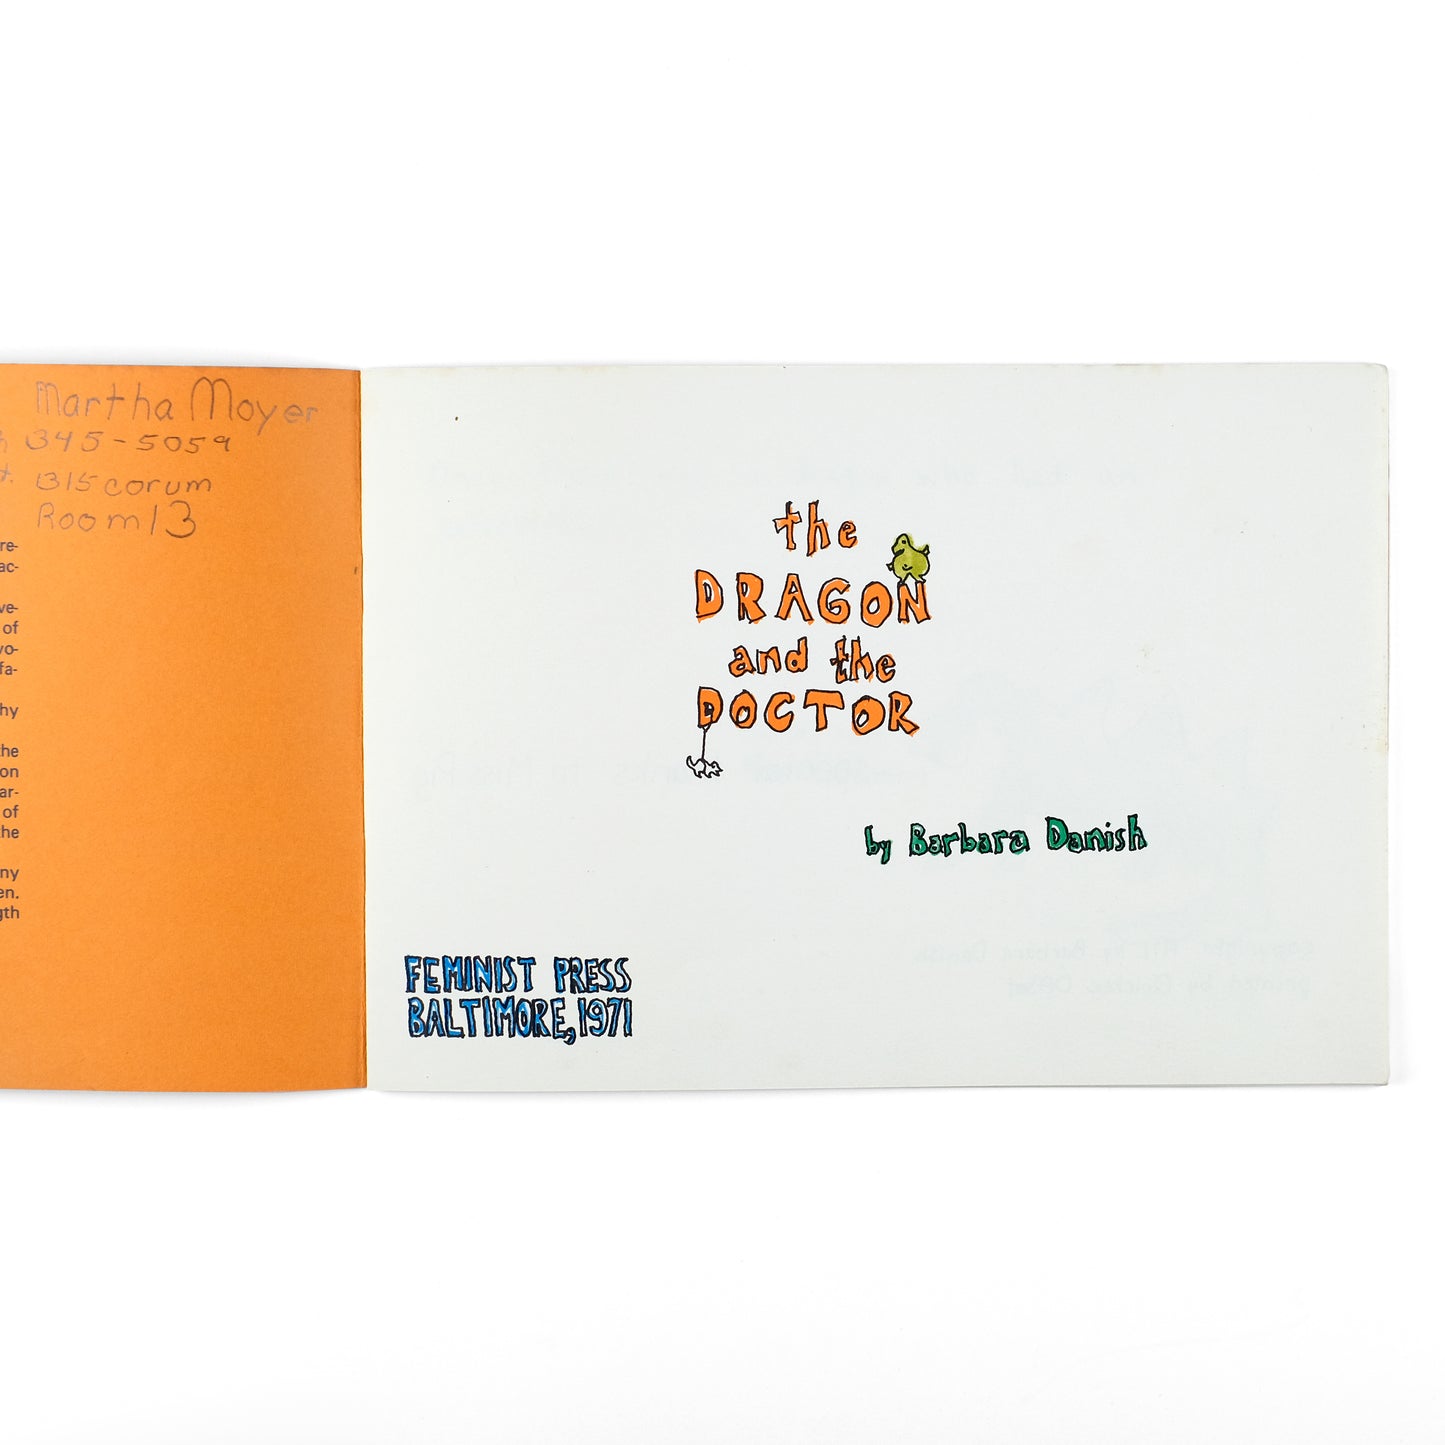 Martha Moyer
345-5059
t. 1315 corum
Room 13
re-
ac-
ve-
of
vo-
fa-
hy
the
on
ar-
of
the
ny
en.
gth
the
DRAGON
and the
DOCTOR
by Barbara Danish
FEMINIST PRESS
BALTIMORE, 1971